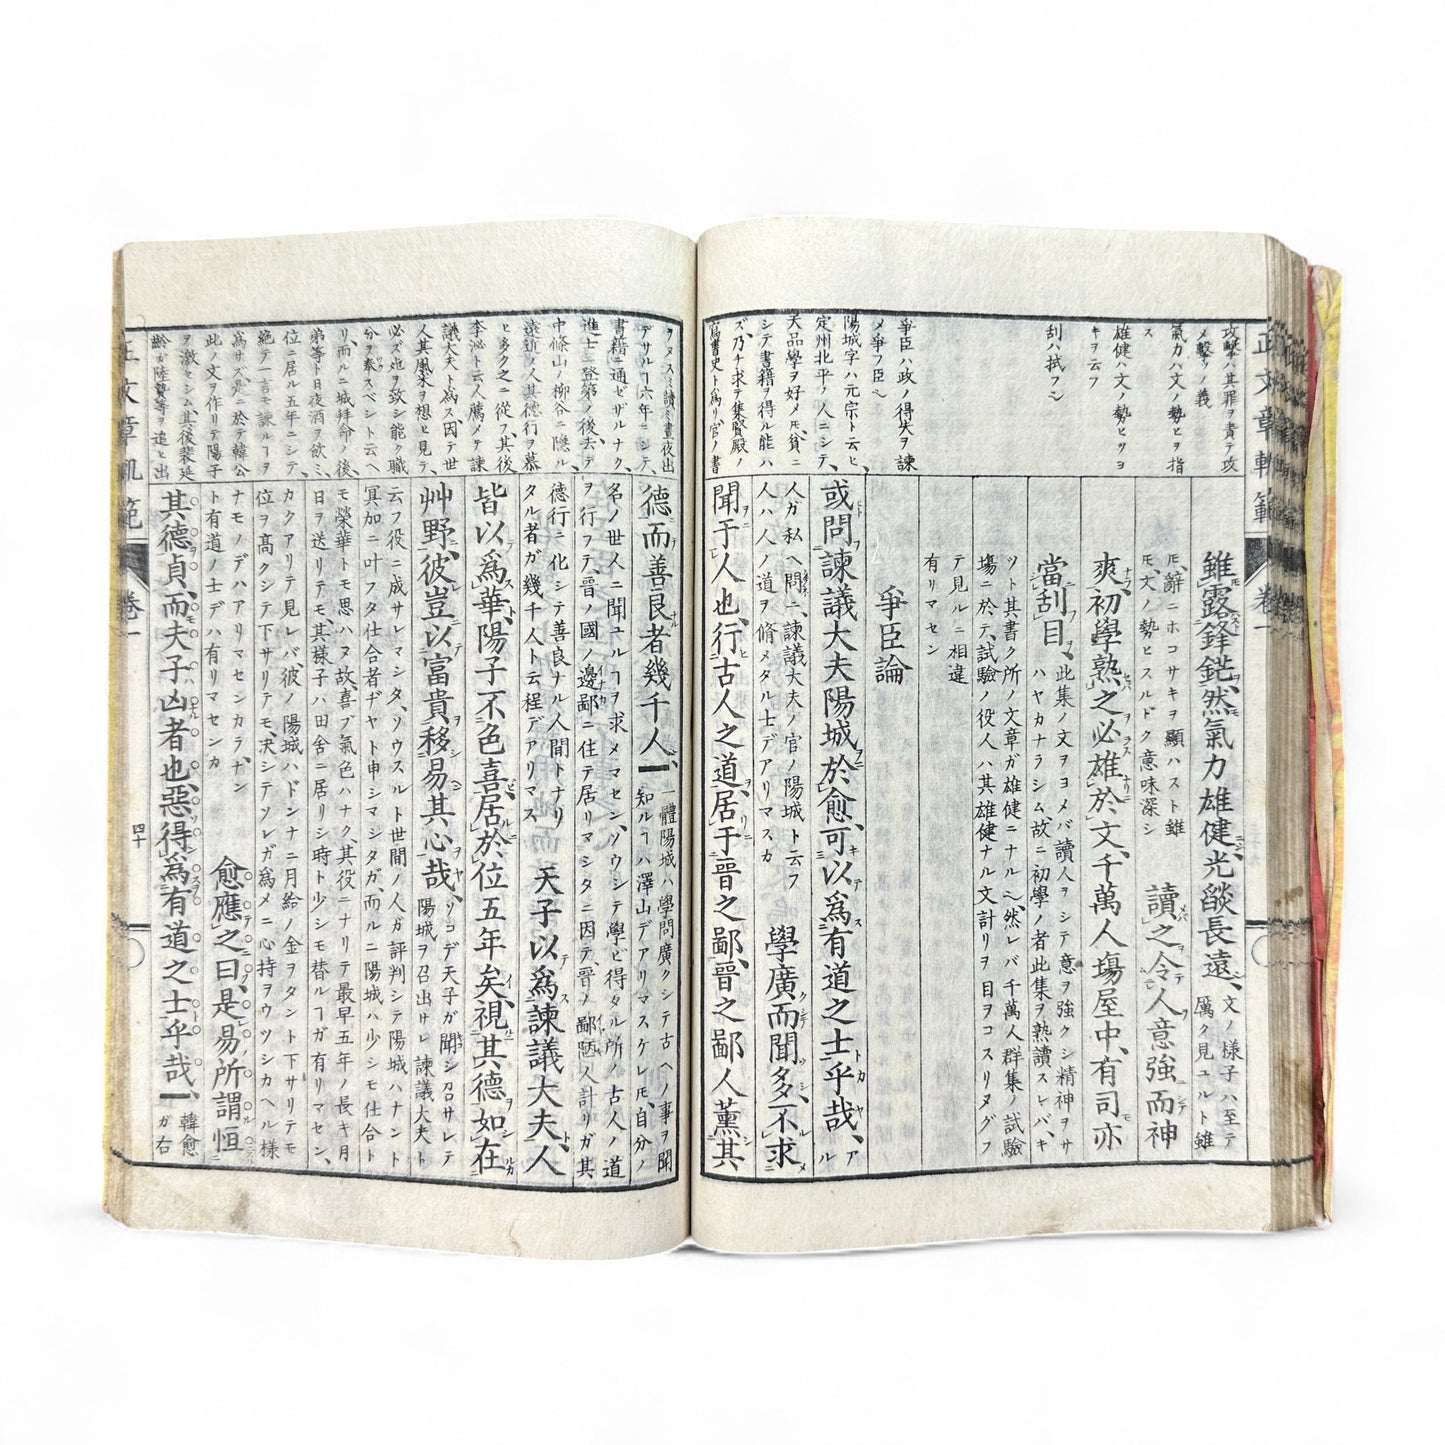 攻撃ハ其罪ヲ責テ攻
メ撃ツノ義
氣力ハ文ノ勢ヒヲ指
ス
雄健ハ文ノ勢ヒツヨ
キヲ云フ
刮ハ拭フシ
爭臣ハ政ノ得失ヲ諫
メ爭フ臣シ
陽城字ハ元宗ト云ヒ、
定州北平ノ人ニシテ、
天品學ヲ好メ𪜈、貧ニ
シテ書籍ヲ得ル能ハ
ズ、乃チ求テ集賢殿ノ
寫書史ト爲リ、官ノ書
雖露鋒鋩、然氣力雄健、光燄長遠、
文ノ様子ハ至テ
厲ク見ユルト雖
𪜈、辭ニホコサキヲ顯ハスト雖
𪜈、文ノ勢ヒスルドク意味深シ
讀之令人意強而神
爽、初學熟之必雄於文、千萬人塲屋中、有司亦
當刮目、
此集ノ文ヲヨメバ讀人ヲシテ意ヲ強クシ精神ヲサ
ハヤカナラシム、故ニ初學ノ者此集ヲ熟讀スレバ、キ
ツト其書ク所ノ文章ガ雄健ニナルシ、然レバ千萬人群集ノ試驗
塲ニ於テ、試驗ノ役人ハ其雄健ナル文計リヲ目ヲコスリヌグフ
テ見ルニ相違
有リマセン
爭臣論
或問諫議大夫陽城於愈、可以爲有道之士乎哉、
人ガ私ヘ問ニ、諫議大夫ノ官ノ陽城ト云フ
人ハ人ノ道ヲ脩メタル士デアリマスカ
學廣而聞多、不求
聞于人也、行古人之道、居于晉之鄙、晉之鄙人薰其
ヲヌスミ讀ミ晝夜出
デサルヿ六年ニシテ、
書籍ニ通ゼザルナク、
進士ニ登第ノ後去テ
中條山ノ柳谷ニ隱ル、
遠近ノ人其德行ヲ慕
ヒ多ク之ニ從フ、其後
李泌ト云人薦メテ諫
議大夫ト爲ス、因テ世
人其風采ヲ想ヒ見テ、
必ズ死ヲ致シ能ク職
分ヲ奏スベシト云ヘ
リ、而ルニ城拜命ノ後、
弟等ト日夜酒ヲ飲ミ、
位ニ居ル五年ニシテ、
絶テ一言モ諫ルヿヲ
爲サズ、是ニ於テ韓公
此ノ文ヲ作リテ陽子
ヲ激セシム其後裴延
齡ガ陸贄等ヲ追ヒ出
德而善良者幾千人、
一體陽城ハ學問廣クシテ古ヘノ事ヲ聞
知ルヿハ澤山デアリマスケレ𪜈、自分ノ
名ノ世人ニ聞ユルヿヲ求メマセン、ソウシテ學ビ得タル所ノ古人ノ道
ヲ行フテ、晉ノ國ノ邊鄙ニ住テ居リマシタニ因テ、晉ノ鄙陋人計リガ其
德行ニ化シテ善良ナル人間トナリ
タル者ガ幾千人ト云程デアリマス
天子以爲諫議大夫、人
皆以爲華、陽子不色喜、居於位五年矣、視其德如在
艸野、彼豈以富貴移易其心哉、
ソコデ天子ガ聞シ召サレテ
陽城ヲ召出サレ諫議大夫ト
云フ役ニ成サレマシタ、ソウスルト世間ノ人ガ評判シテ陽城ハナント
冥加ニ叶フタ仕合者ギヤト申シマシタガ、而ルニ陽城ハ少シモ仕合ト
モ榮華トモ思ハヌ故、喜ブ氣色ハナク、其役ニナリテ最早五年ノ長キ月
日ヲ送リテモ、其樣子ハ田舍ニ居リシ時ト少シモ替ルヿガ有リマセン、
カクアリテ見レバ、彼ノ陽城ハドンナニ月給ノ金ヲタント下サリテモ
位ヲ髙クシテ下サリテモ、決シテソレガ爲メニ心持ヲウツシカヘル樣
ナモノデハアリマセンカラ、ナン
ト有道ノ士デハ有リマセンカ
愈應之曰、是易所謂恒
其德貞、而夫子凶者也、惡得爲有道之士乎哉、
韓愈
ガ右
正文章軌範
卷一
四十